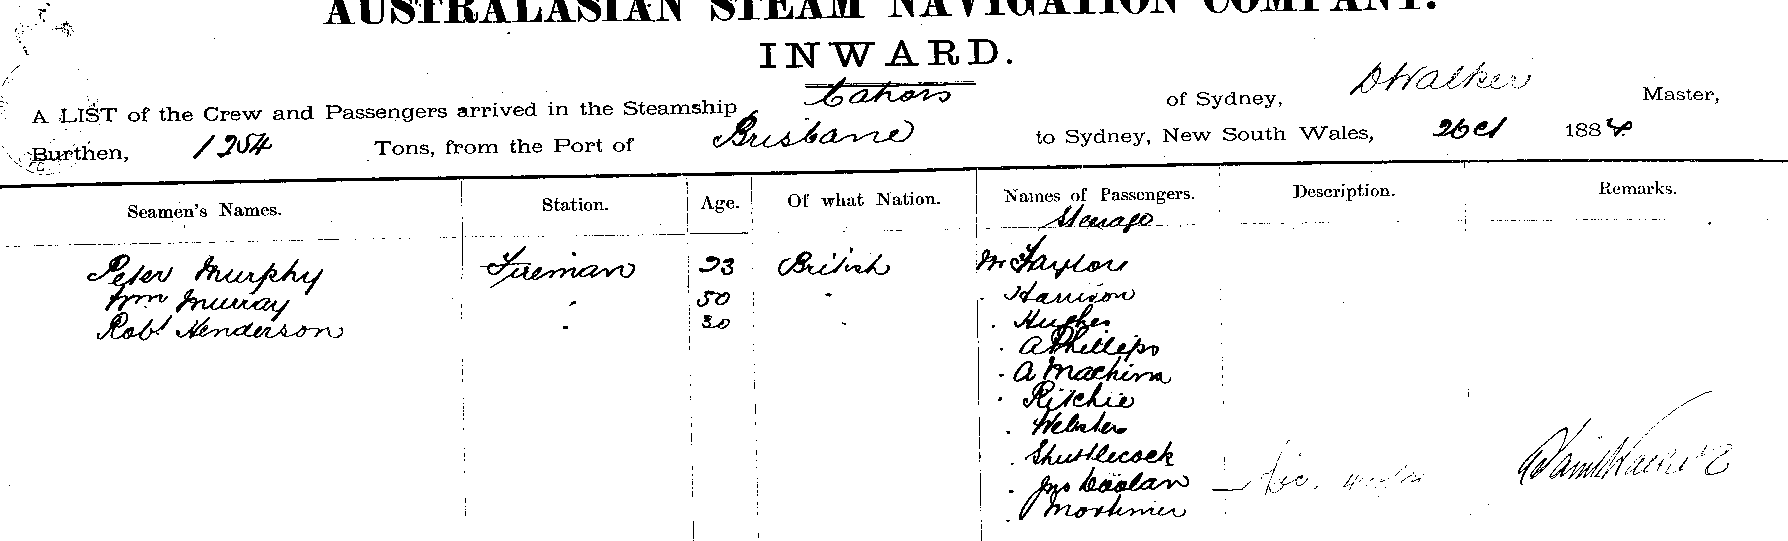 AUSTRALASIAN STEAM NAVIGATION COMPANY.
INWARD.
A LIST of the Crew and Passengers arrived in the Steamship Cahors of Sydney, D Walker Master,
Burthen, 1254 Tons, from the Port of Brisbane to Sydney, New South Wales, 2 Oct 1884
Seamen's Names. Station. Age. Of what Nation. Names of Passengers. Description. Remarks.
Steerage
Peter Murphy Fireman 23 British Mr Taylor
Wm Murray " 50 " " Harrison
Robt Henderson " 30 " " Hughes
" A Phillips
" A Machin
" Ritchie
" Webster
" Shuttlecock
" Jno Coolan
" Mortimer
David Walker